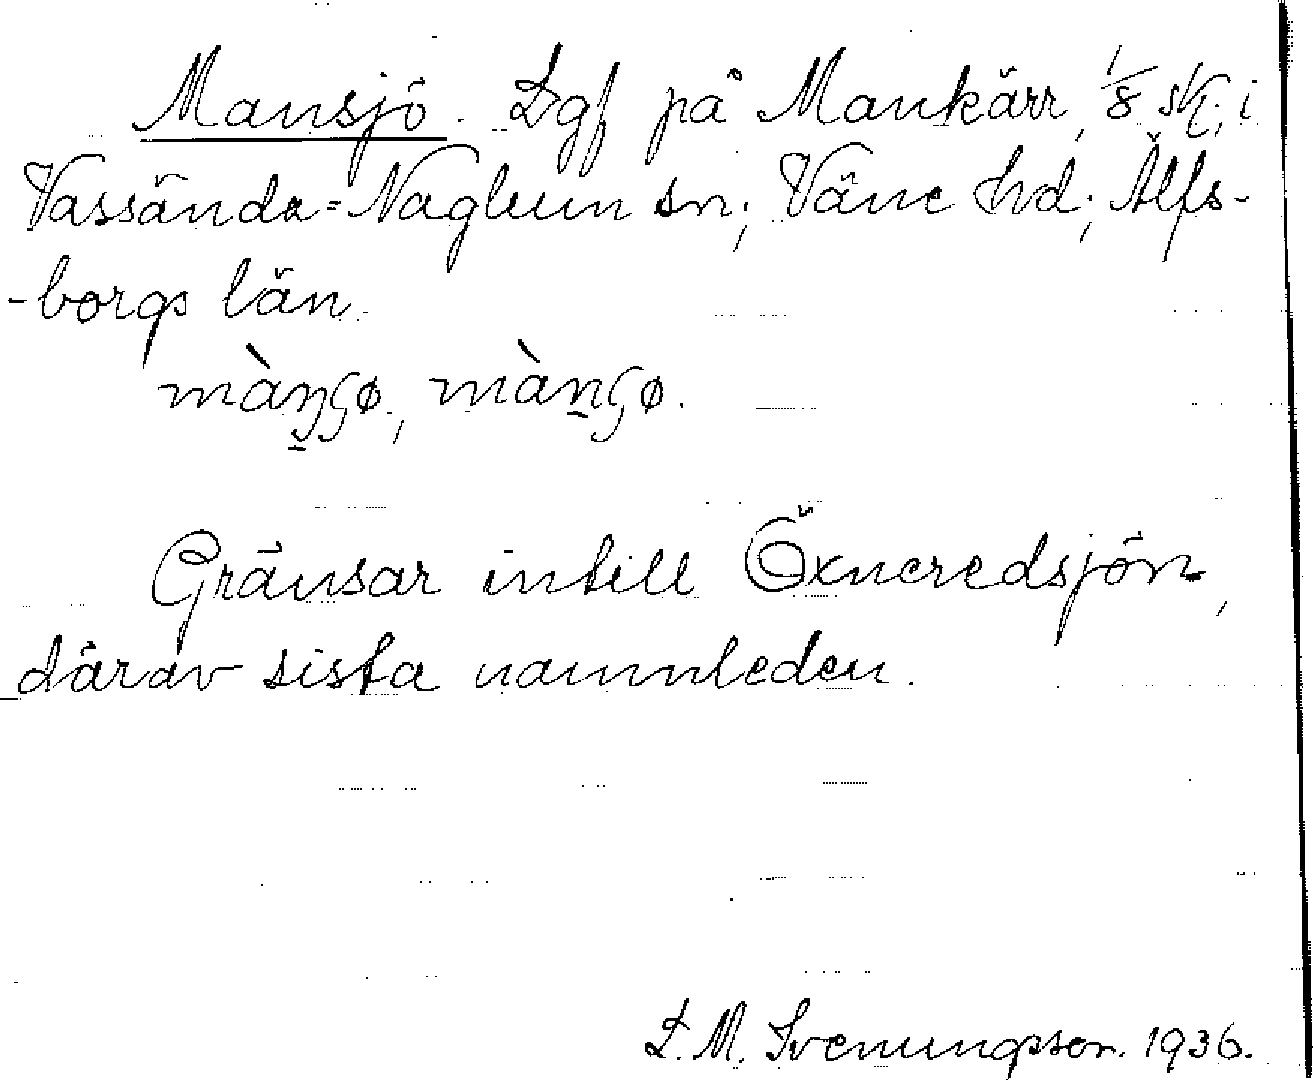 Mansjö. Lgf på Mankärr, 1/8 sk; i
Vassända-Naglum sn; Väne hd; Älfs-
-borgs län.
Gränsar intill Öxneredsjön,
därav sista namnleden.
L. M. Svenungsson. 1936.